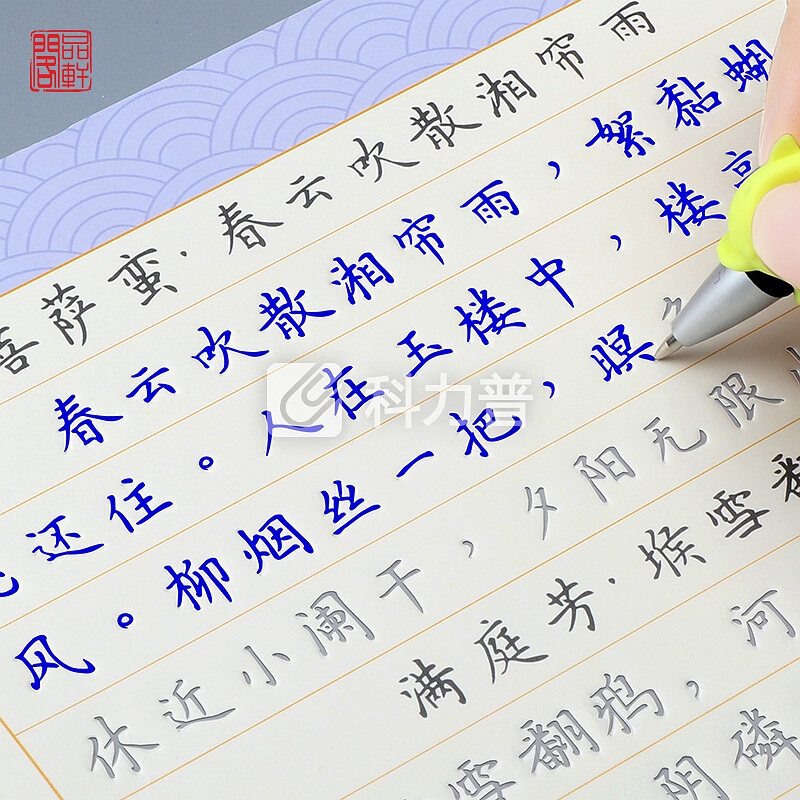 品軒閣
菩萨蛮·春云吹散湘帘雨
春云吹散湘帘雨，絮黏蝴
还住。人在玉楼中，楼高
风。柳烟丝一把，暝
休近小阑干，夕阳无限
满庭芳·堠雪翻
雪翻鸦，河
阴磷
科力普